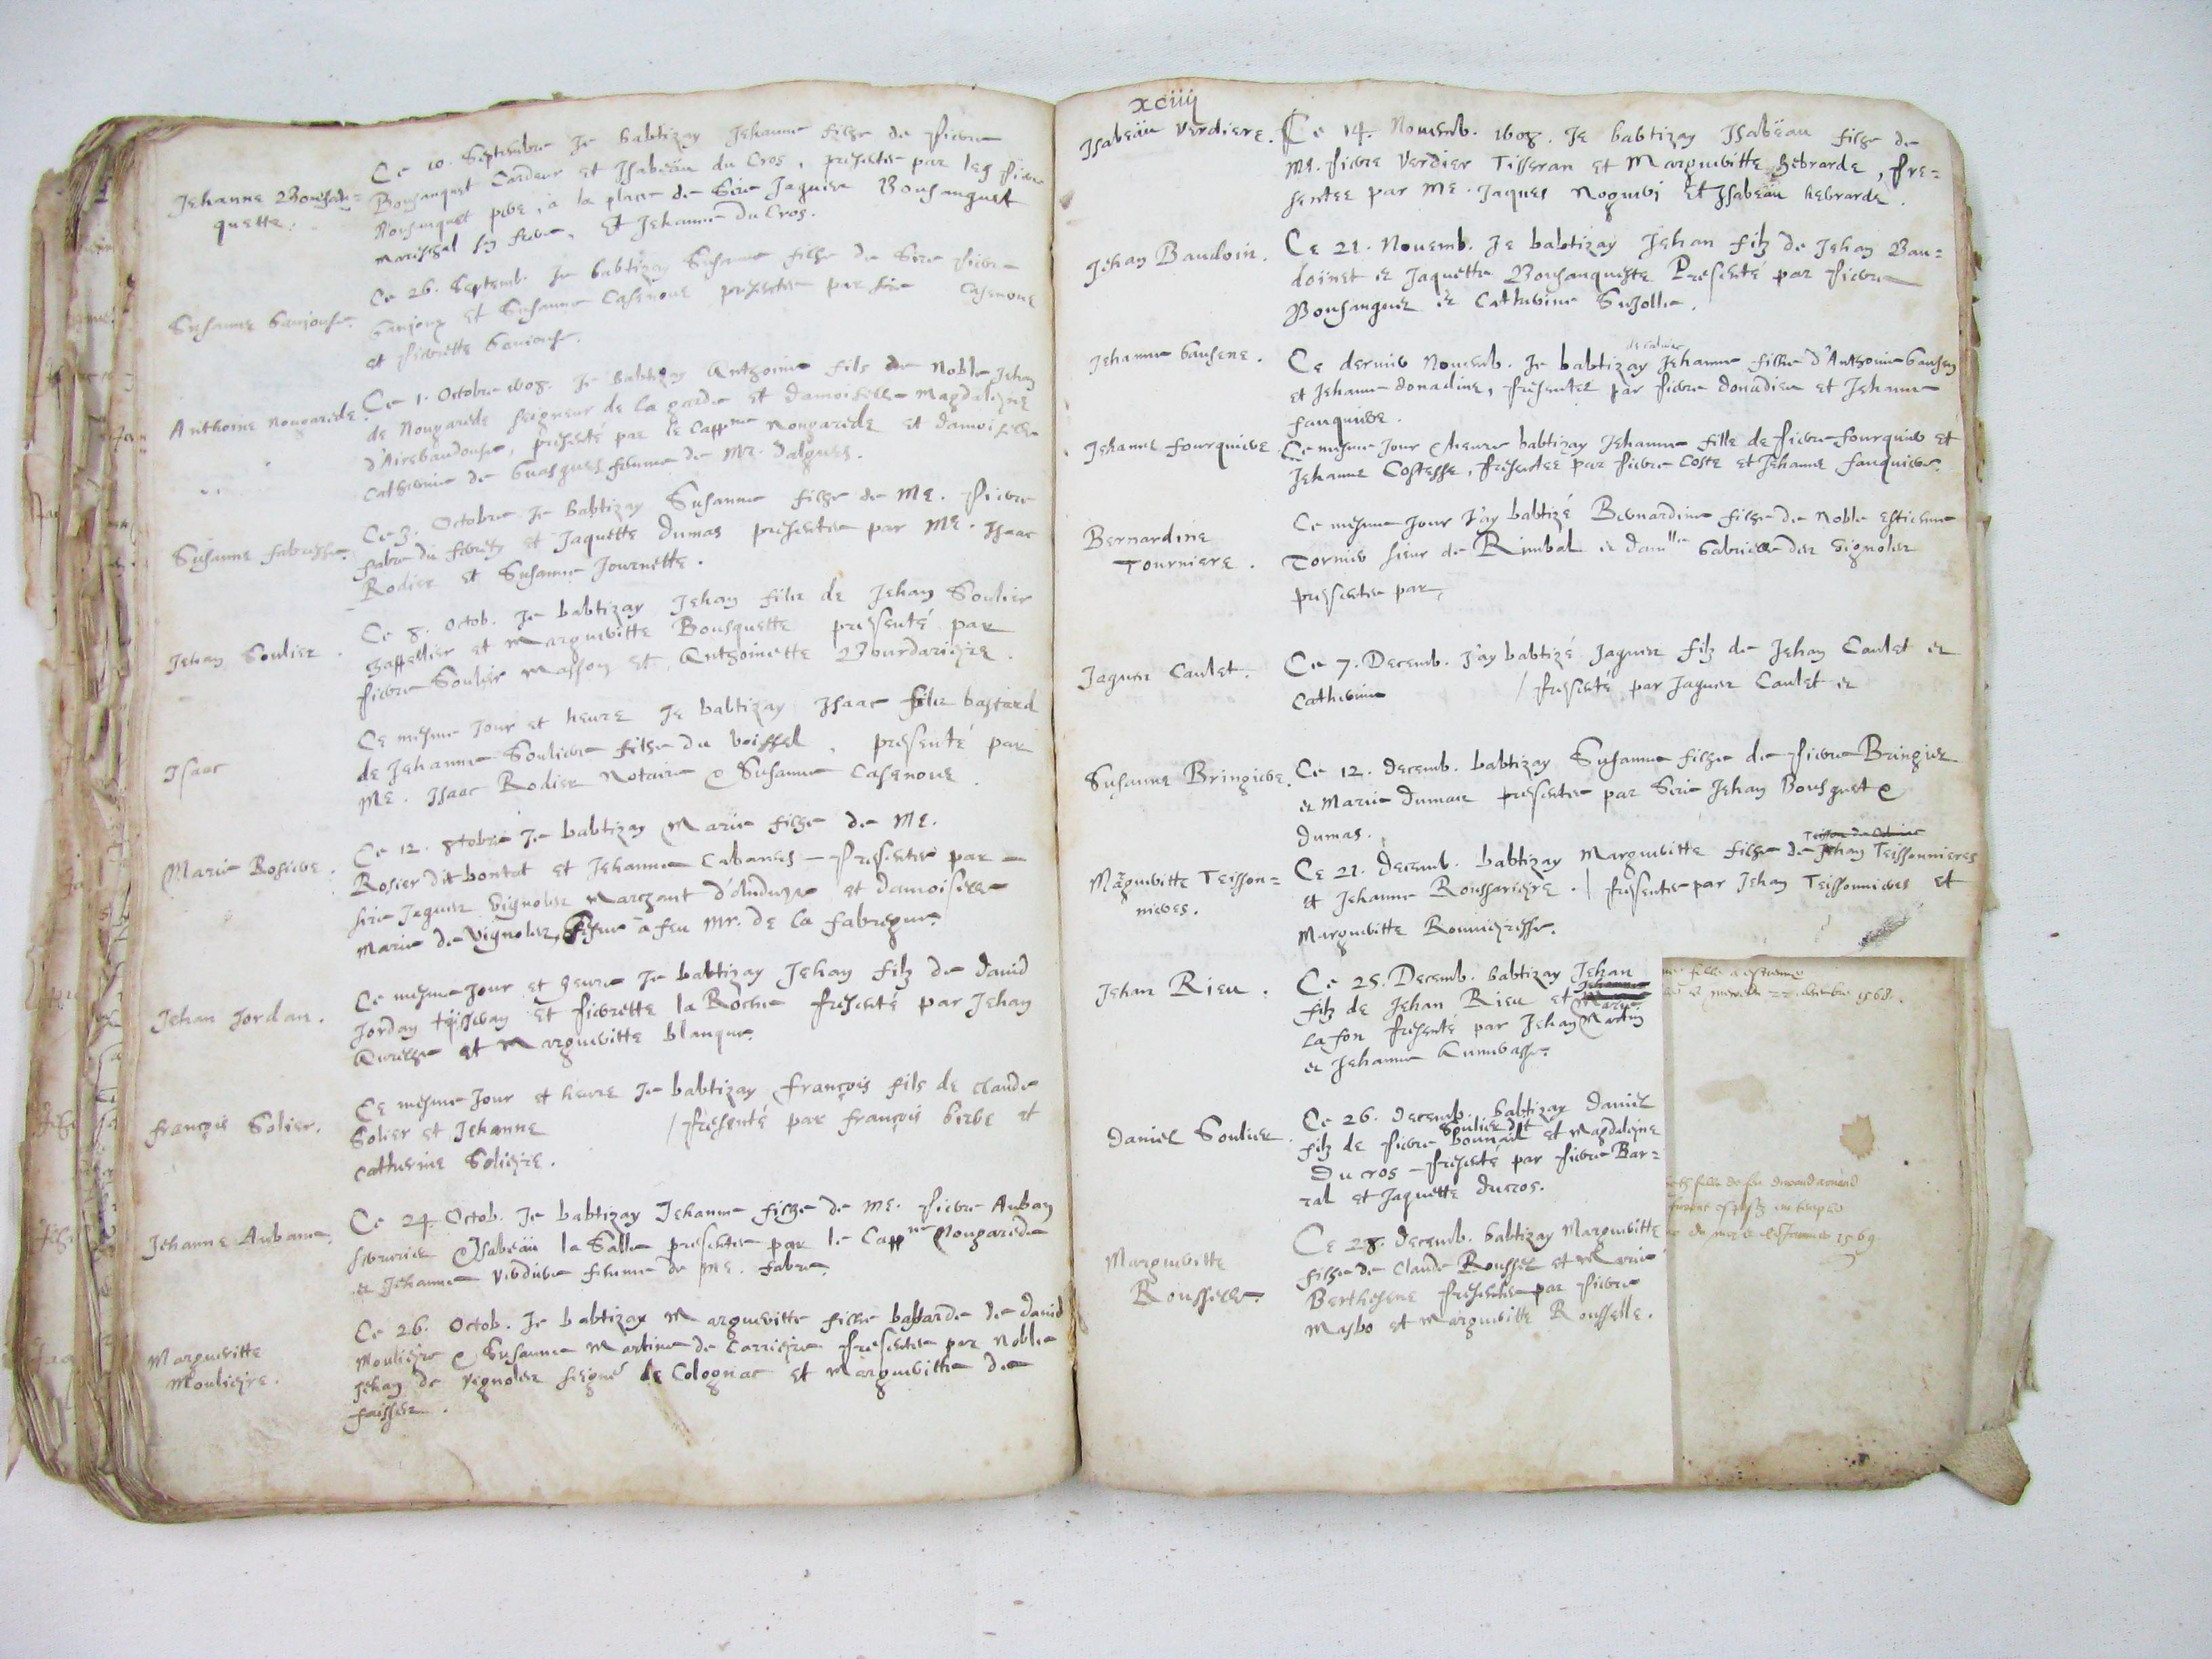 Jehanne Bousan=
quette.
Ce 10. Septembre Je babtizay Jehanne fille de Pierre
Bousanquet Cardeur et Isabeau du Cros, presentee par led Pierre
Bousanquet pere, a la place de Sire Jaques Bousanquet
mareschal so frere, et Jehanne du Cros.
Susanne Gaujouse.
Ce 26. Septemb. Je babtizay Susanne fille de Sire Pierre
Gaujoux et Susanne Casenove presentee par sire Casenove
et Pierrette Gaujouse.
Anthoine Nougarede.
Ce 1. Octobre 1608. Je babtizay Anthoine fils de Noble Jehan
de Nougarede seigneur de la garde et damoiselle Magdaleyne
d'Airebaudouse, presenté par le Cappne Nougarede et damoiselle
Catherine de Guasques femme de Mr. Dalgues.
Susanne fabresse.
Ce 3. Octobre Je babtizay Susanne fille de Me. Pierre
fabre du et Jaquette Dumas presentee par Me. Isaac
Rodier et Susanne Journette.
Jehan Soulier.
Ce 8. Octob. Je babtizay Jehan filz de Jehan Soulier
Chappellier et Marguerite Bousquette presenté par
Pierre Soulier masson et Anthoinette Bourdarieyre.
Isaac
Ce mesme Jour et heure Je babtizay Isaac filz bastard
de Jehanne Souliere fille du boissel, presenté par
Me. Isaac Rodier Notaire & Susanne Casenove.
Marie Rosiere.
Ce 12. 8tobre Je babtizay Marie fille de Me.
Rosier dit bontat et Jehanne Cabanes - Presentee par -
sire Jaques Vignoles marchant d'Anduze et damoiselle
Marie de Vignoles, à feu Mr. de la fabregue.
Jehan Jordan.
Ce mesme Jour et heure Je babtizay Jehan filz de David
Jordan teisseran et Pierrette la Roche Presenté par Jehan
et Marguerite blanque.
François Solier.
Ce mesme Jour et heure Je babtizay François fils de Claude
Solier et Jehanne / Presenté par François Girbe et
Catherine Solieyre.
Jehanne Aubane.
Ce 24. Octob. Je babtizay Jehanne fille de Me. Pierre Auban
serrurier & Isabeau la Salle presentee par le Cappne Nougarede
et Jehanne Verdiere femme de Me. Fabre.
Margueritte
Moulieyre.
Ce 26. Octob. Je babtizay Margueritte fille bastarde de David
Moulieyre & Susanne Martine de Carrieyre Presentee par Noble
Jehan de Vignoles seigne de Colognac et Margueritte de
faisses.
xciiij
Isabeau Verdiere.
Ce 14. Novemb. 1608. Je babtizay Isabeau fille de
Me. Pierre Verdier Tisseran et Margueritte Hebrarde, Pre=
sentee par Me. Jaques Noguier et Isabeau hebrarde.
Jehan Baudoin.
Ce 21. Novemb. Je babtizay Jehan filz de Jehan Bau=
doinet et Jaquette Bousanquette Presenté par Pierre
Bousanquet et Catherine Suzolle.
Jehanne Gausene.
Ce dernier Novemb. Je babtizay Jehanne fille d'Anthoine Gausen
et Jehanne donadine, Presentee par Pierre donadieu et Jehanne
fauquiere.
Jehanne fourquiere.
Ce mesme Jour & heure babtizay Jehanne fille de Pierre fourquier et
Jehanne Costesse, Presentee par Pierre Coste et Jehanne fauquiere.
Bernardine
Tourniere.
Ce mesme Jour J'ay babtizé Bernardine fille de Noble Estienne
Tornier sieur de Rimbal et damlle Gabrielle des Vignoles
presentee par,
Jaques Caulet.
Ce 7. Decemb. J'ay babtizé Jaques filz de Jehan Caulet et
Catherine / Presenté par Jaques Caulet et
Susanne Bringiere.
Ce 12. decemb. babtizay Susanne fille de Pierre Bringier
et Marie Dumas presentee par Sire Jehan Bousquet &
dumas.
Margueritte Teisson=
nieres.
Ce 21. Decemb. babtizay Margueritte fille de Jehan Teissonnieres
et Jehanne Roussarieyre. / Presentee par Jehan Teissonnieres et
Margueritte
Jehan Rieu.
Ce 25. Decemb. babtizay Jehan
filz de Jehan Rieu et Marie
Lafon Presenté par Jehan Martin
et Jehanne
Daniel Soulier.
Ce 26. Decemb. babtizay Daniel
filz de Pierre Soulier dit et Magdaleyne
Du cros - Presenté par Pierre Bar=
ral et Jaquette ducros.
Margueritte
Rousselle.
Ce 28. decemb. babtizay Margueritte
fille de Claude Roussel et Marie
Berthezene Presentee par Pierre
Masbo et Margueritte Rousselle.
22 decembre 1568.
1569